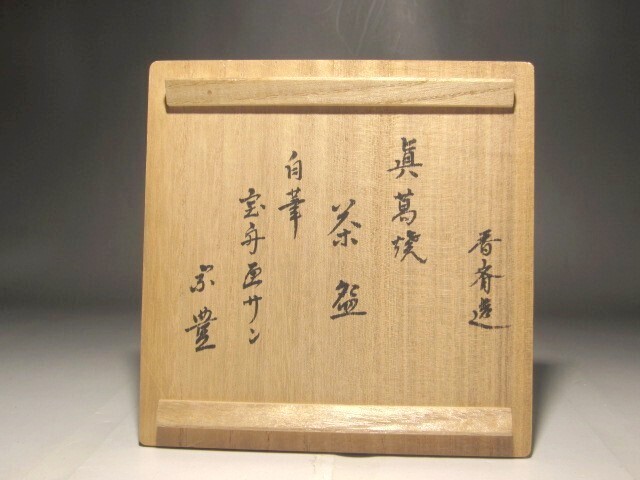 春斎造
眞葛焼
茶盌
自筆
宝舟画サン
宗豊